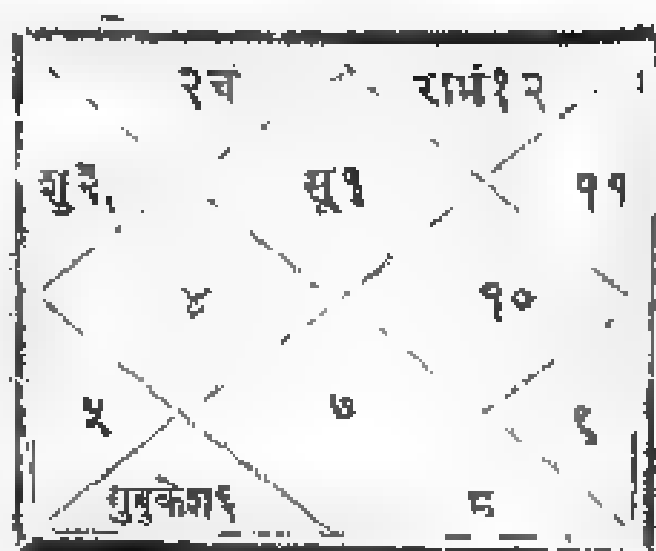 २चं
रामं१२
शु३
सू१
११
४
१०
५
७
९
गुबुकेश६
८